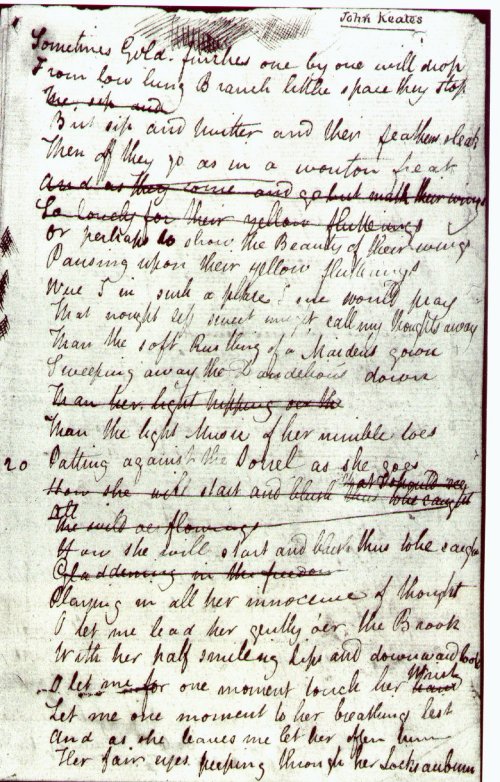 John Keates
Sometimes Gold-finches one by one will drop
From low hung Branch little space they stop
The sip and
But sip and twitter and their feathers sleek
Then off they go as in a wanton freak
And as they come and go but mark their wings
So lovely for their yellow flutterings
Or perhaps to show the Beauty of their wings
Pausing upon their yellow flutterings
Were I in such a place I sure would pray
That nought less sweet might call my thoughts away
Than the soft Rustling of a Maidens gown
Sweeping away the Dandelions down
Than her light tripping oer the
Than the light Music of her nimble toes
Patting against the Sorrel as she goes
20
How she will start and blush that I should see
thus to be caught
The wild oer flowings
How she will start and blush thus to be caught
Gladdening in the freedom
Playing in all her innocence of thought
O let me lead her gently o'er the Brook
With her half smiling Lips and downward look
O let me for one moment touch her Wrist
Let me one moment to her breathing list
And as she leaves me let her often turn
Her fair eyes peeping through her Locks auburn